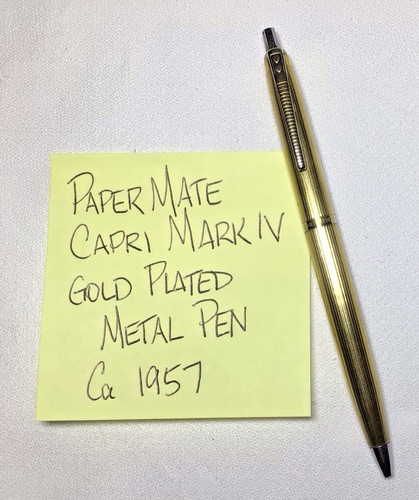 PAPER MATE
CAPRI MARK IV
GOLD PLATED
METAL PEN
Ca 1957